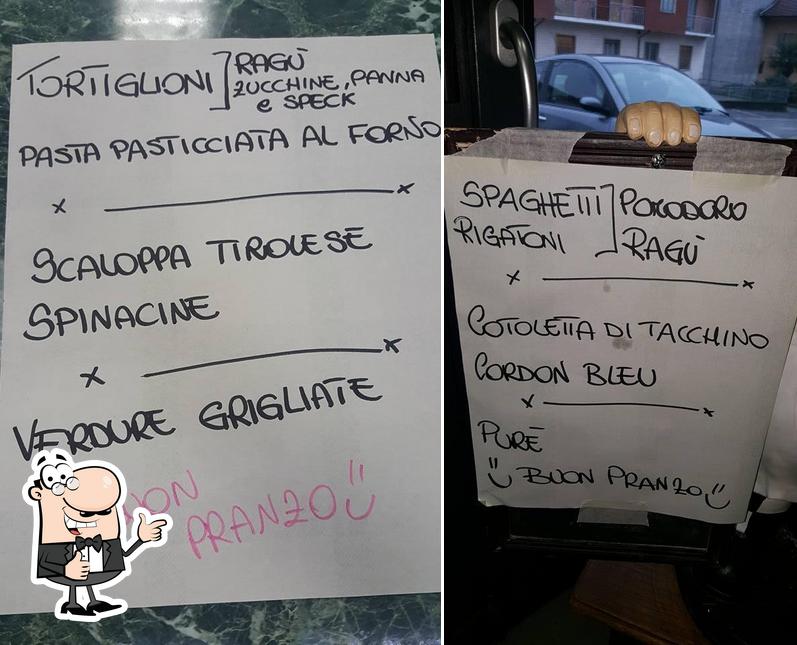 TORTIGLIONI ] RAGÙ
ZUCCHINE, PANNA
e SPECK
PASTA PASTICCIATA AL FORNO
x x
SCALOPPA TIROLESE
SPINACINE
x x
VERDURE GRIGLIATE
PRANZO
SPAGHETTI ] POMODORO
RIGATONI RAGÙ
x x
COTOLETTA DI TACCHINO
CORDON BLEU
x x
PURÈ
BUON PRANZO